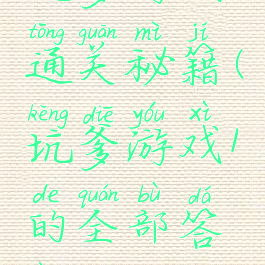 tōng guān mì jí
通关秘籍(
kēng diē yóu xì
坑爹游戏1
de quán bù dá
的全部答